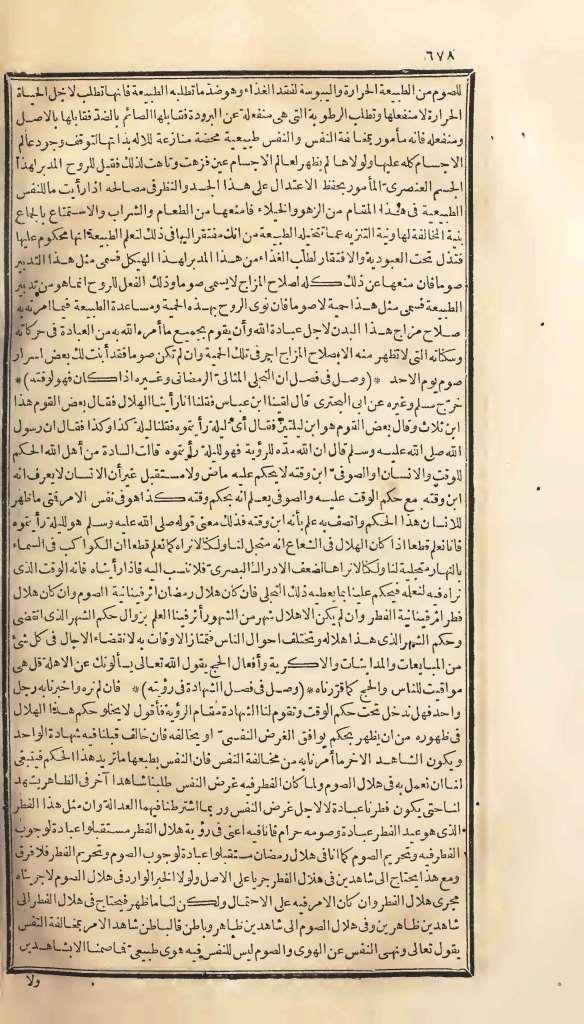 ٦٧٨
للصوم من الطبيعة الحرارة واليبوسة لفقد الغذاء وهو ضد ما تطلبه الطبيعة فانها تطلب لاجل الحياة
الحرارة لا منفعلها وتطلب الرطوبة التى هى منفعلة عن البرودة فقابلها الصائم بالضد فقابلها بالاصل
ومنفعله فانه مأمور بمخالفة النفس والنفس طبيعية محضة منازعة للاله بذاتها لتوقف وجود عالم
الاجسام كله عليها ولولاها لم يظهر لعالم الاجسام عين فزهت وتاهت لذلك فقيل للروح المدبر لهذا
الجسم العنصرى المأمور بحفظ الاعتدال على هذا الجسد والنظر فى مصالحه اذا رأيت ما للنفس
الطبيعية فى هذا المقام من الزهو والخيلاء فامنعها من الطعام والشراب والاستمتاع بالجماع
بنية المخالفة لها ونية التنزيه عما تتخيله الطبيعة من انك مفتقر اليها فى ذلك لتعلم الطبيعة انها محكوم عليها
فتذل تحت العبودية والافتقار لطلب الغذاء من هذا المدبر لهذا الهيكل فسمى مثل هذا التدبير
صوما فان منعها عن ذلك كله لصلاح المزاج لا يسمى صوما وذلك الفعل للروح انما هو من تدبير
الطبيعة فسمى مثل هذا حمية لا صوما فان نوى الروح بهذه الحمية ومساعدة الطبيعة فيما امرته به
صلاح مزاج هذا البدن لاجل عبادة الله وأن يقوم بجميع ما أمره الله به من العبادة فى حركاته
وسكناته التى لا تظهر منه الا بصلاح المزاج اجر فى تلك الحمية وان لم تكن صوما فقد أبنت لك بعض اسرار
صوم يوم الاحد * (وصل فى فصل ان التجلى المثالى الرمضانى وغيره اذا كان فهو لوقته) *
خرّج مسلم وغيره عن ابى البخترى قال لقينا ابن عباس فقلنا انا رأينا الهلال فقال بعض القوم هذا
ابن ثلاث وقال بعض القوم هو ابن ليلتين فقال أىّ ليلة رأيتموه فقلنا ليلة كذا وكذا فقال ان رسول
الله صلى الله عليه وسلم قال ان الله مدّه للرؤية فهو لليلة رأيتموه قالت السادة من أهل الله الحكم
للوقت والانسان او الصوفىّ ابن وقته لا يحكم عليه ماض ولا مستقبل غير أن الانسان لا يعرف انه
ابن وقته مع حكم الوقت عليه والصوفى يعلم انه بحكم وقته كذا هو فى نفس الامر فتى ما ظهر
للانسان هذا الحكم واتصف به علم بأنه ابن وقته فذلك معنى قوله صلى الله عليه وسلم هو لليلة رأيتموه
فانا نعلم قطعا اذا كان الهلال فى الشعاع انه متجل لنا ولكنا لا نراه كما نعلم قطعا ان الكواكب فى السماء
بالنهار متجلية لنا ولكنا لا نراها لضعف الادراك البصرى فلا ننسب اليه فاذا رأيناه فانه الوقت الذى
نراه فيه لنعلمه فيحكم علينا بما يعطيه ذلك التجلى فان كان هلال رمضان اثر فينا نية الصوم وان كان هلال
فطر اثر فينا نية الفطر وان لم يكن الا هلال شهر من الشهور أثر فينا العلم بزوال حكم الشهر الذى انقضى
وحكم الشهر الذى هذا هلاله وتختلف احوال الناس فتمتاز الاوقات به لانقضاء الاجال فى كل شئ
من المبايعات والمداينات والاكرية وأفعال الحج يقول الله تعالى يسألونك عن الاهلة قل هى
مواقيت للناس والحج كما قررناه * (وصل فى فصل الشهادة فى رؤيته) * فان لم نره واخبرنا به رجل
واحد فهل ندخل تحت حكم الوقت وتقوم لنا الشهادة مقام الرؤية فأقول لا يخلو حكم هذا الهلال
فى ظهوره من ان يظهر بحكم يوافق الغرض النفسىّ او يخالفه فان خالف قبلنا فيه شهادة الواحد
ويكون الشاهد الاخر ما أمرنا به من مخالفة النفس فان النفس بطبعها ما تريد هذا الحكم فينبغى
لنا ان نعمل به فى هلال الصوم ولما كان الفطر فيه غرض النفس طلبنا شاهدا آخر فى الظاهر يشهد
لنا حتى يكون فطرنا عبادة لا لاجل غرض النفس وربما اشترطنا فيهما العدالة وان مثل هذا الفطر
الذى هو عيد الفطر عبادة وصومه حرام فانا فيه اعنى فى رؤية هلال الفطر مستقبلوا عبادة لوجوب
الفطر فيه وتحريم الصوم كما انا فى هلال رمضان مستقبلوا عبادة لوجوب الصوم وتحريم الفطر فلا فرق
ومع هذا يحتاج الى شاهدين فى هلال الفطر جريا على الاصل ولولا الخبر الوارد فى هلال الصوم لاجريناه
مجرى هلال الفطر وان كان الامر فيه على الاحتمال ولكن لنا ما ظهر فيحتاج فى هلال الفطر الى
شاهدين ظاهرين وفى هلال الصوم الى شاهدين ظاهر وباطن فالباطن شاهد الامر بمخالفة النفس
يقول تعالى ونهى النفس عن الهوى والصوم ليس للنفس فيه هوى طبيعىّ فما صمنا الا بشاهدين
ولا